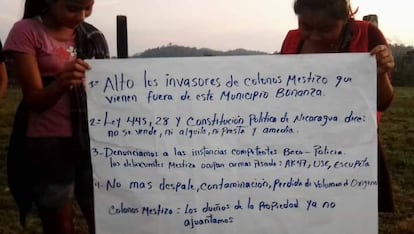 1- Alto los invasores de colonos Mestizo que
vienen fuera de este Municipio Bonanza.
2- Ley 445, 28 y Constitución Política de Nicaragua dice:
no se vende, ni alquila, ni presta y amedia.
3- Denunciamos a las instancias competentes Beco - Policia.
los delincuentes Mestizo ocupan armas Pisado: AK47, USE, Escupeta
4 No mas despale, Contaminación, Perdida de Volumen d Oxigeno
Colonos Mestizo: Los dueños de la Propiedad ya no
aguantamos